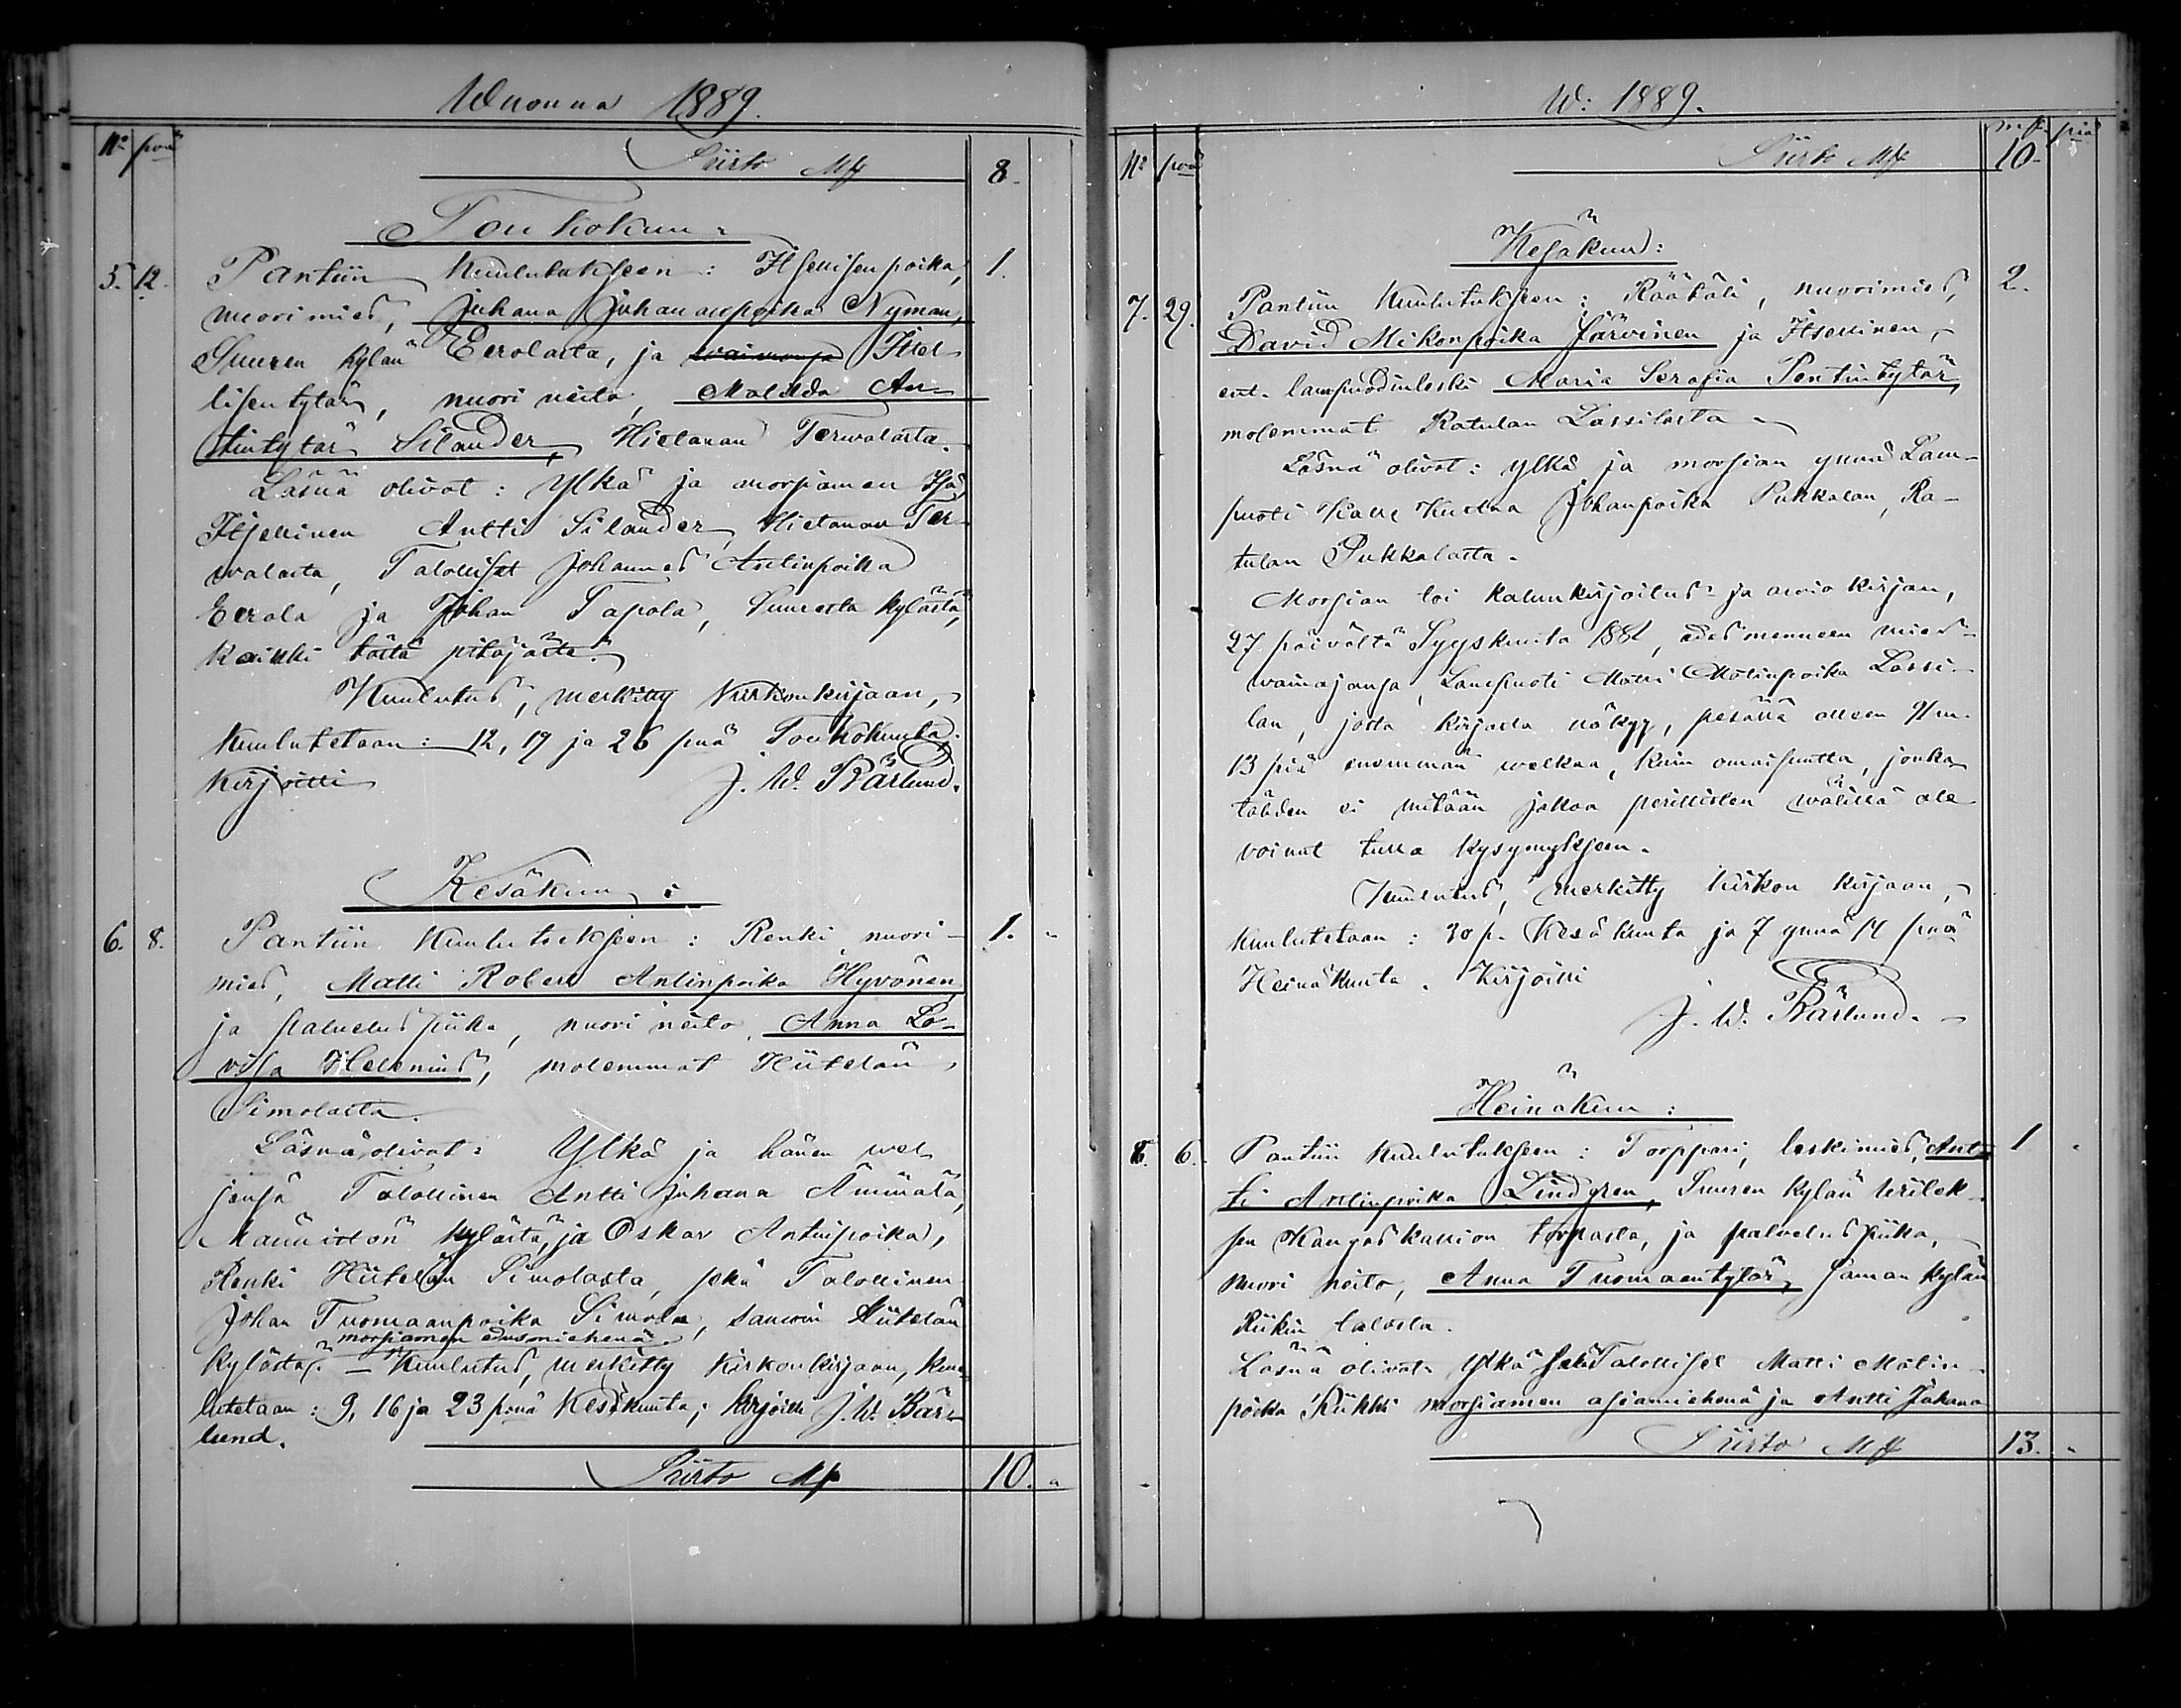 Wuonna 1889.
No pvä
Siirto Mk 8.
Toukokuu:
5. 12. Pantiin kuulutukseen: Itsellisen poika, 1.
nuorimies, Juhana Juhananpoika Nyman,
Suuren kylän Eerolasta, ja Itsel-
lisen tytär, nuori neito, Matilda An-
tintytär Silander, Hietanan Terwalasta.
Läsnä olivat: Ylkä ja morsiamen Isä,
Itsellinen Antti Silander, Hietanan Ter-
walasta, Talolliset Johannes Antinpoika
Eerola ja Johan Tapola, Suuresta kylästä,
kaikki tästä pitäjästä.
Kuulutus, merkitty kirkonkirjaan,
kuulutetaan: 12, 19 ja 26 pnä Toukokuuta.
Kirjoitti J. W. Bärlund.
Kesäkuu:
6. 8. Pantiin kuulutukseen: Renki nuori- 1. "
mies, Matti Robert Antinpoika Hyvönen
ja palvelus piika, nuori neito, Anna Lo-
visa Hellenius, molemmat Hiitelän
Simolasta.
Läsnä olivat: Ylkä ja hänen wel-
jensä Talollinen Antti Juhana Ämmälä,
Männistön kylästä, ja Oskar Antinpoika,
Renki Hiitelän Simolasta, sekä Talollinen
Johan Tuomaanpoika Simola, samoin Hiitelän
morsiamen edusmiehenä
kylästä. – Kuulutus, merkitty kirkonkirjaan, kuu-
lutetaan: 9, 16 ja 23 pnä Kesäkuuta; kirjoitti J. W. Bär-
lund.
Siirto Mk 10. "
W: 1889.
No pvä mk piä
Siirto Mk 10-
Kesäkuu:
7. 29. Pantiin kuulutukseen: Räätäli, nuorimies, 2.
David Mikonpoika Järvinen ja Itsellinen,
ent. lampuodinleski Maria Serafia Pentintytär,
molemmat Ratulan Lassilasta
Läsnä olivat: ylkä ja morsian ynnä Lam-
puoti Kalle Kustaa Johanpoika Pukkalan, Ra-
tulan Pukkalasta.
Morsian toi kalunkirjoitus- ja arvio kirjan,
27 päivältä Syyskuuta 1882, edesmenneen mies-
wainajansa, Lampuoti Matti Matinpoika Lassi-
lan, josta kirjasta näkyy, pesällä olleen 91 m.
13 piä enemmän welkaa, kuin omaisuutta, jonka
tähden ei mitään jakoa perillisten wälillä ole
voinut tulla kysymykseen.
Kuulutus, merkitty kirkon kirjaan,
kuulutetaan: 30 p. Kesäkuuta ja 7 ynnä 14 pnä
Heinäkuuta. Kirjoitti
J. W. Bärlund.
Heinäkuu:
8. 6. Pantiin kuulutukseen: Torppari, leskimies, Ant- 1 "
ti Antinpoika Lindgren, Suuren kylän
sen Kangaskallion torpasta, ja palvelus piika,
nuori neito, Anna Tuomaantytär, saman kylän
Riikin talosta.
Läsnä olivat Ylkä sekä Talolliset Matti Matin-
poika Riikki morsiamen asiamiehenä ja Antti Juhana
Siirto Mk 13. "